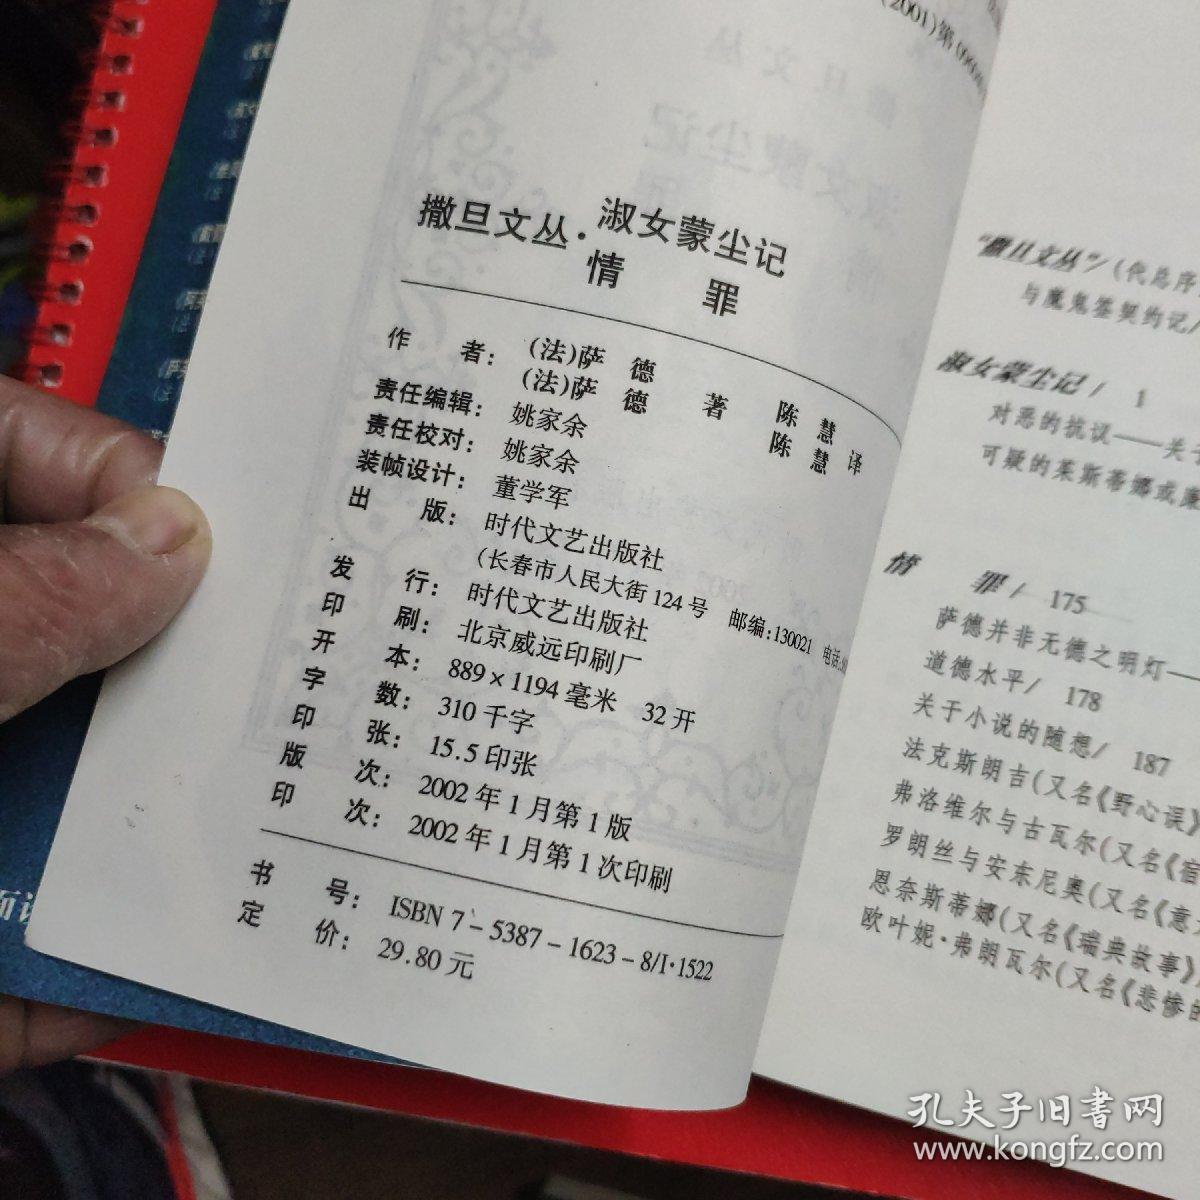 (2001)第
撒旦文丛·淑女蒙尘记
情 罪
作 者：(法)萨 德 著 陈 慧 译
(法)萨 德 陈 慧
责任编辑：姚家余
责任校对：姚家余
装帧设计：董学军
出 版：时代文艺出版社
(长春市人民大街124号 邮编：130021 电话
发 行：时代文艺出版社
印 刷：北京威远印刷厂
开 本：889×1194毫米 32开
字 数：310千字
印 张：15.5印张
版 次：2002年1月第1版
印 次：2002年1月第1次印刷
书 号：ISBN 7-5387-1623-8/I·1522
定 价：29.80元
“撒旦文丛”/(代总序
与魔鬼签契约记/
淑女蒙尘记/ 1
对恶的抗议——关于
可疑的茱斯蒂娜或
情 罪/ 175
萨德并非无德之明灯——
道德水平/ 178
关于小说的随想/ 187
法克斯朗吉(又名《野心误》)
弗洛维尔与古瓦尔(又名《宿
罗朗丝与安东尼奥(又名《意
恩奈斯蒂娜(又名《瑞典故事》)
欧叶妮·弗朗瓦尔(又名《悲惨的
孔夫子旧书网
www.kongfz.com